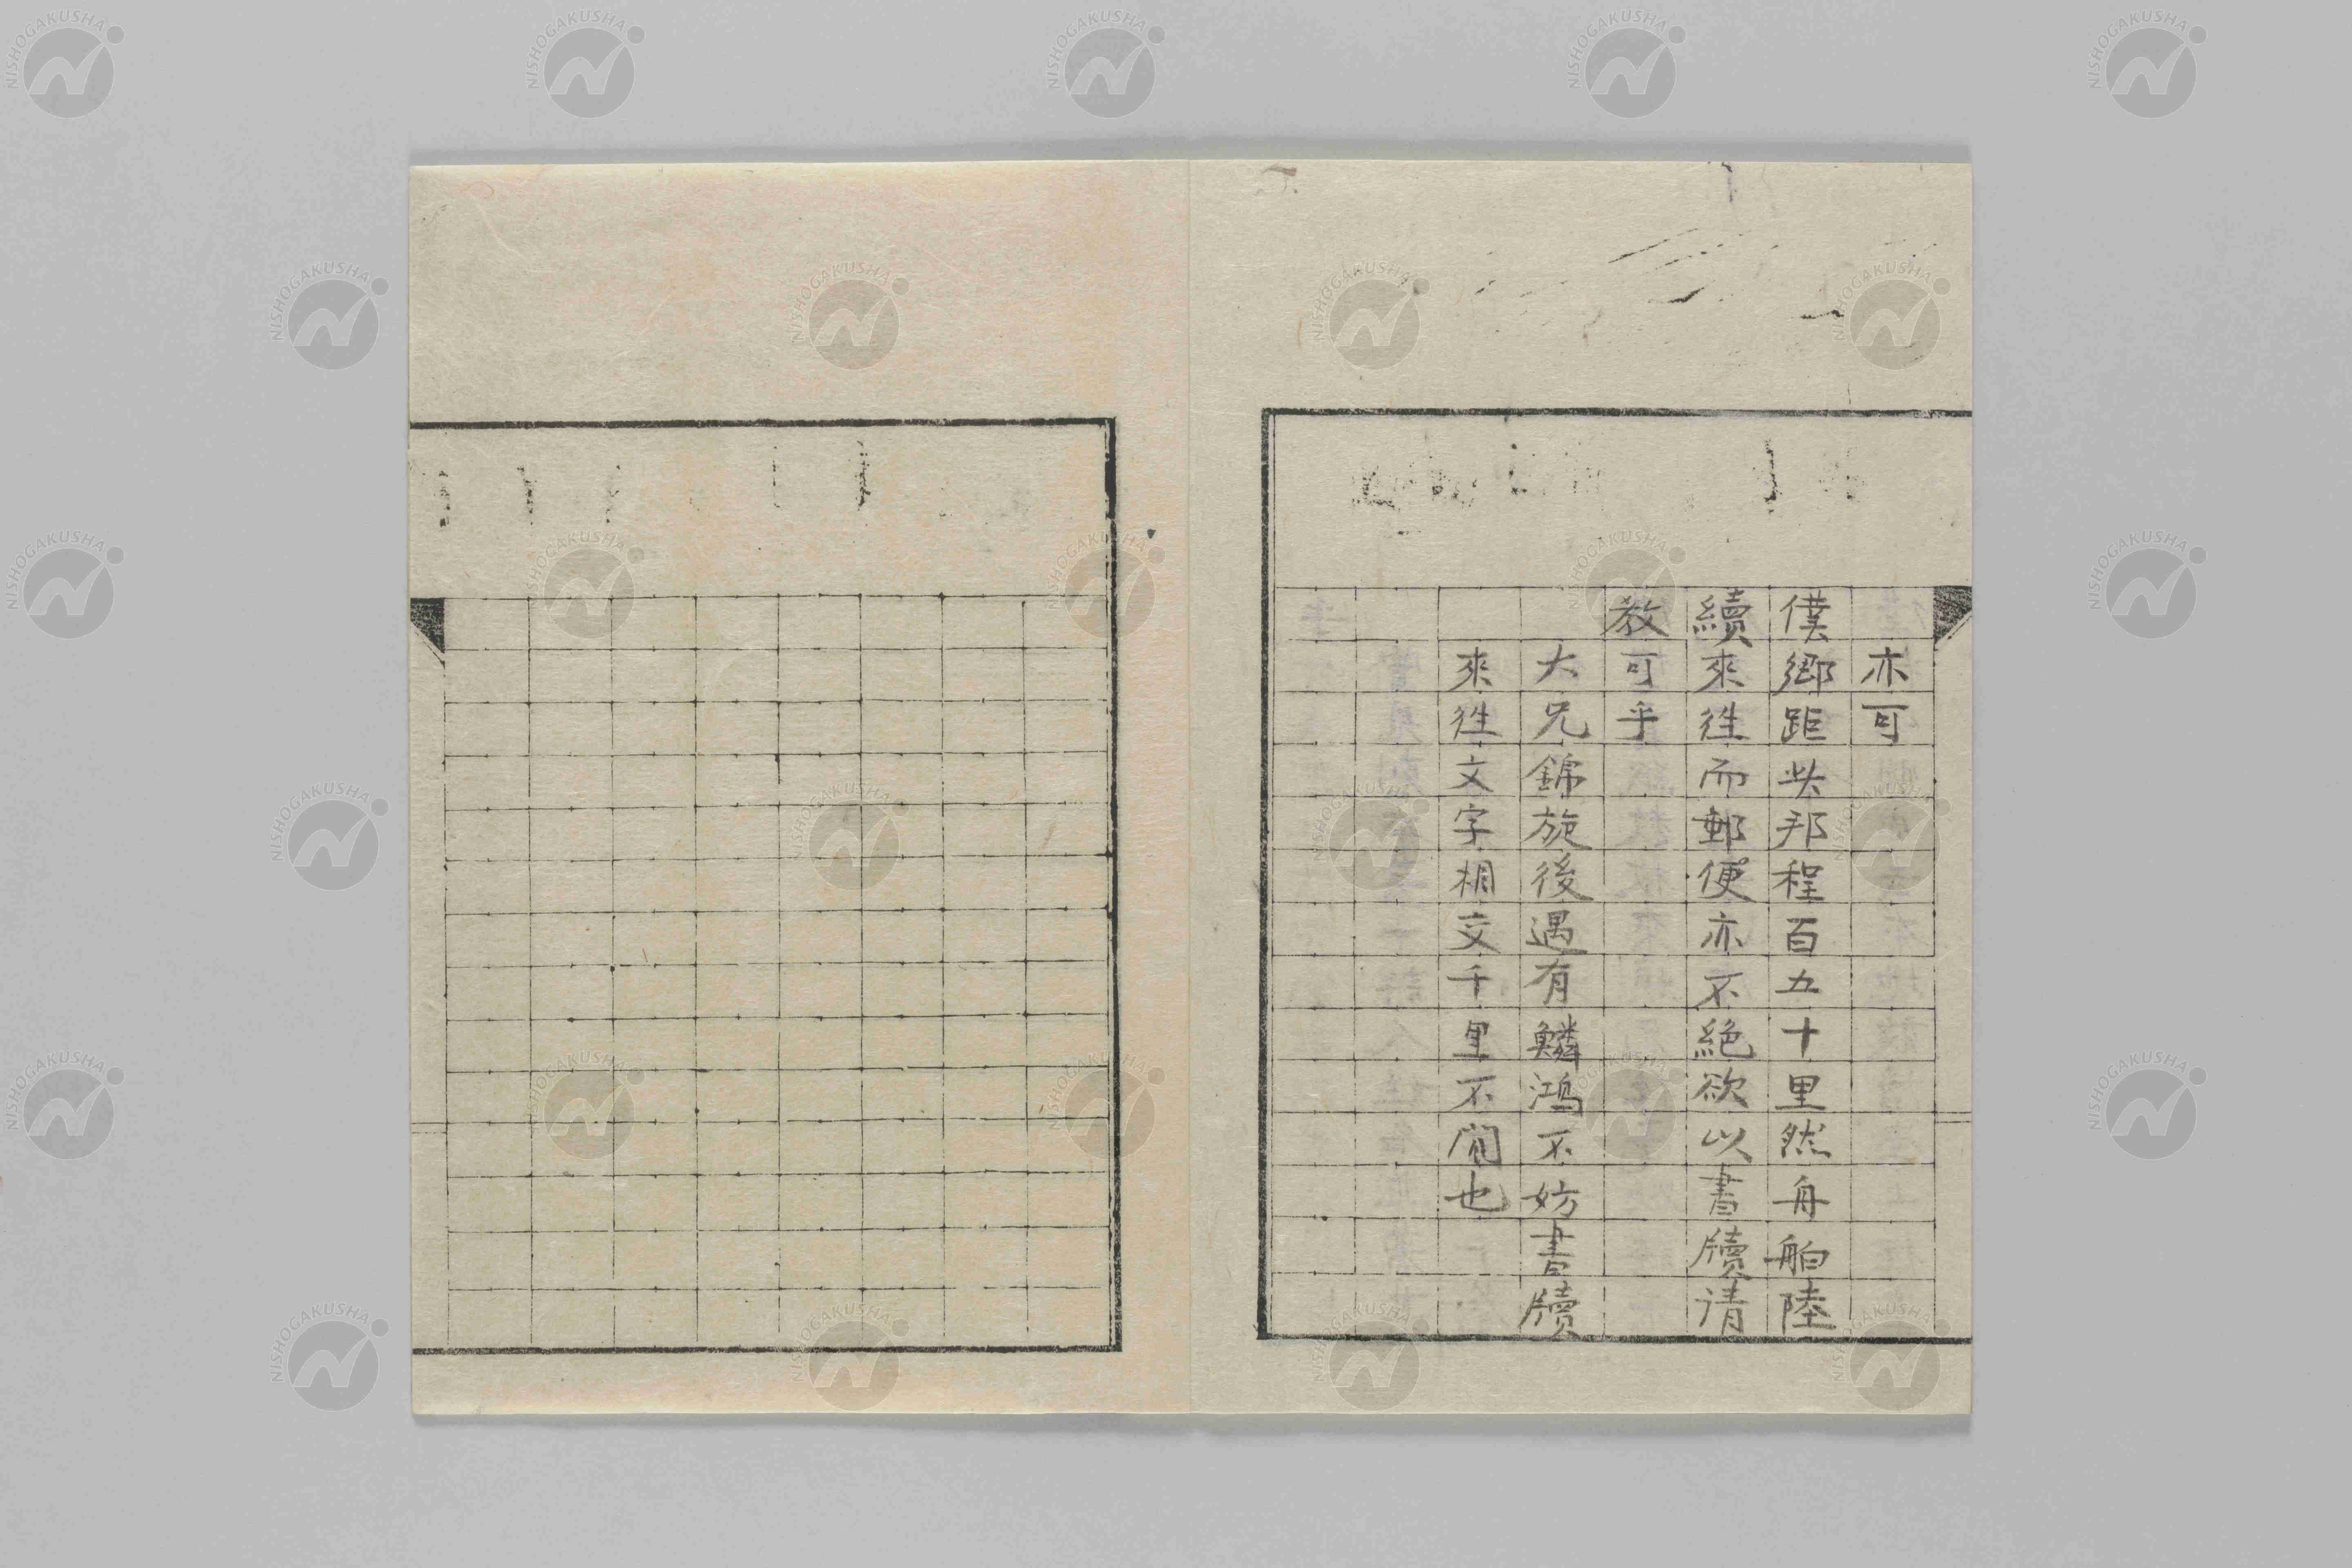 亦可
僕鄉距此邦程百五十里然舟舶陸
續來往而郵便亦不絕欲以書牘請
教可乎
大兄錦旋後遇有鱗鴻不妨書牘
來往文字相交千里不間也